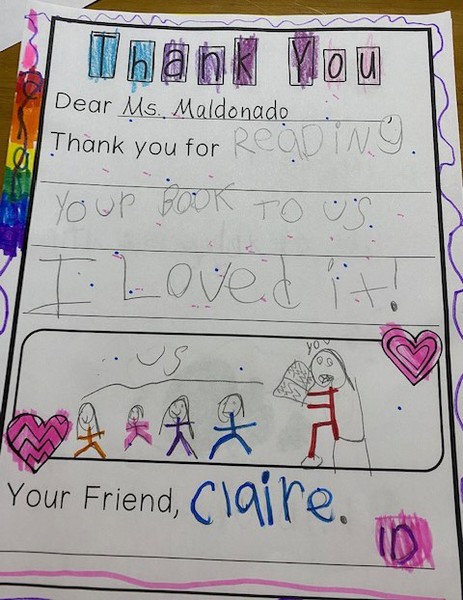 Thank You
Dear Ms. Maldonado
Thank you for READING
YOUR BOOK TO US
I Loved it!
US
YOU
Your Friend, Claire.
1D